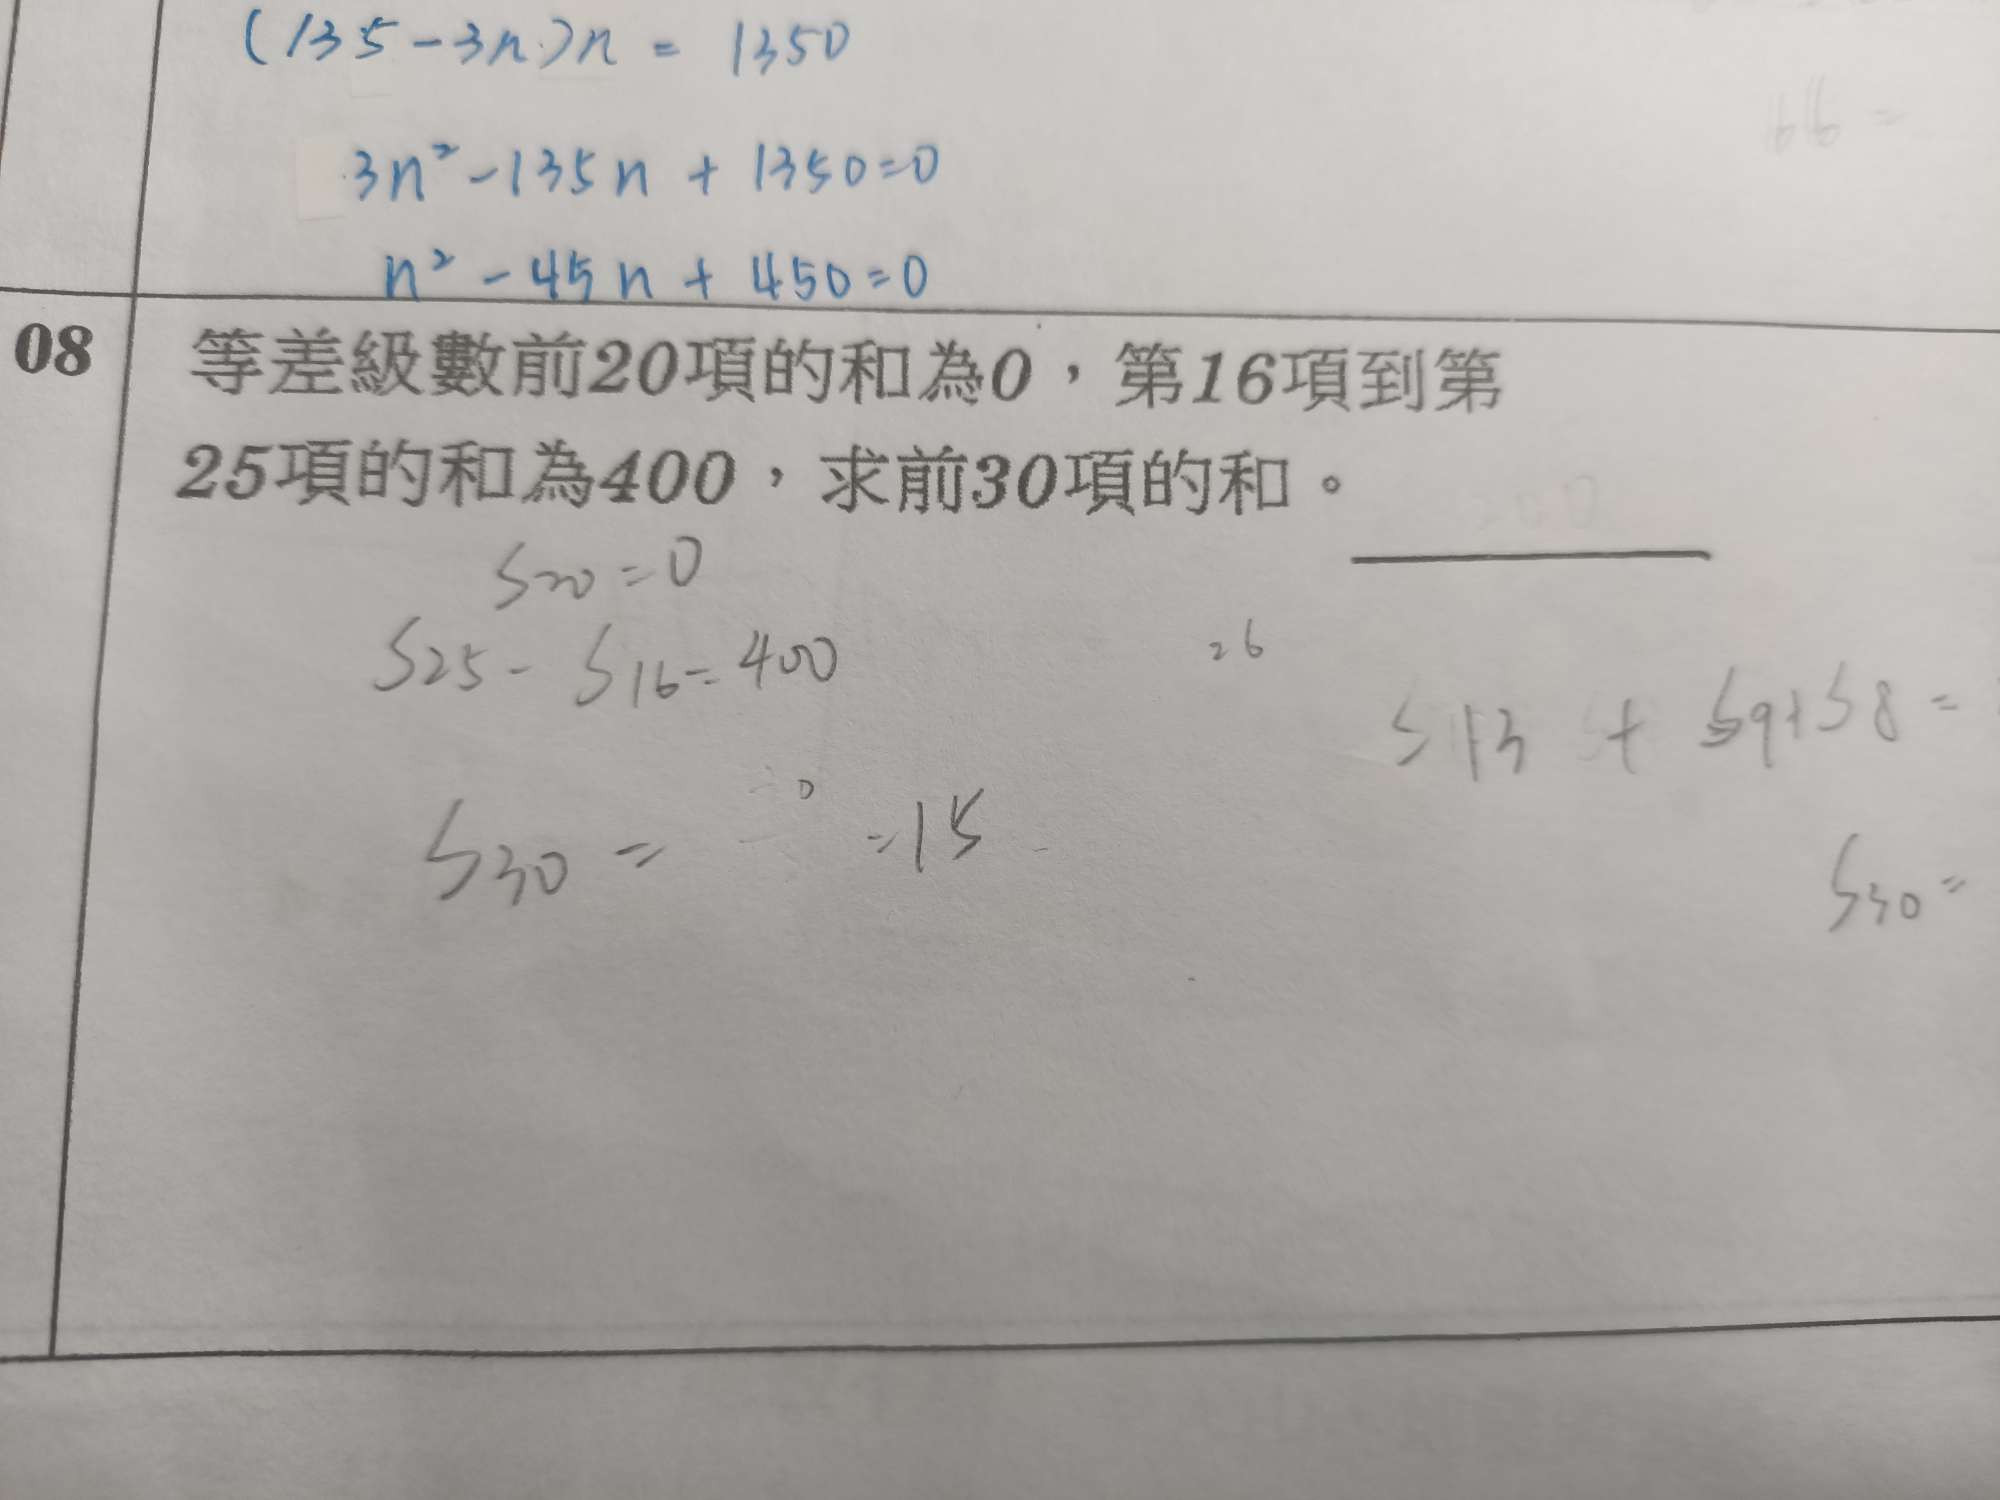 (135-3n)n = 1350
3n²-135n + 1350=0
n² - 45n + 450=0
08 等差級數前20項的和為0，第16項到第
25項的和為400，求前30項的和。
S20 = 0
S25 - S16 = 400
26
S13 + S9+S8 =
S30 = 0 = 15
S30 =